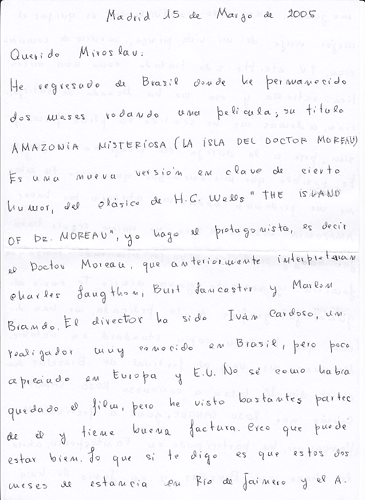 Madrid 15 de Marzo de 2005
Querido Miroslav:
He regresado de Brasil donde he permanecido
dos meses rodando una pelicula, su titulo
AMAZONIA MISTERIOSA (LA ISLA DEL DOCTOR MOREAU)
Es una nueva versión en clave de cierto
humor, del clásico de H.G. Wells "THE ISLAND
OF DR. MOREAU", yo hago el protagonista, es decir
el Doctor Moreau, que anteriormente interpretaran
Charles Laugthon, Burt Lancaster y Marlon
Brando. El director ha sido Iván Cardoso, un
realizador muy conocido en Brasil, pero poco
apreciado en Europa y E.U. No sé como habrá
quedado el film, pero he visto bastantes partes
de él y tiene buena factura. Creo que puede
estar bien. Lo que si te digo es que estos dos
meses de estancia en Rio de Janeiro y el A.